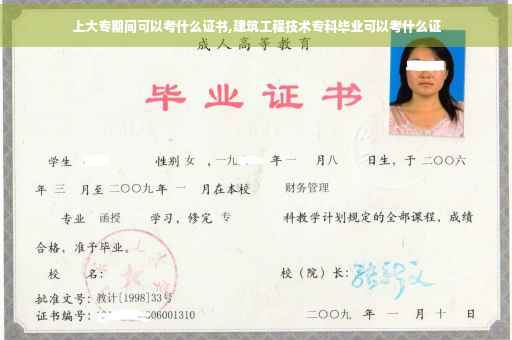 上大专期间可以考什么证书,建筑工程技术专科毕业可以考什么证
成人高等教育
毕业证书
学生 性别 女 ,一九 年 一 月 八 日生,于二〇〇六
年 三 月至二〇〇九年 一 月在本校 财务管理
专业 函授 学习,修完 专 科教学计划规定的全部课程,成绩
合格,准予毕业。
校 名: 校(院)长:
批准文号:教计[1998]33号
证书编号: 06001310 二〇〇九 年 一 月 十 日